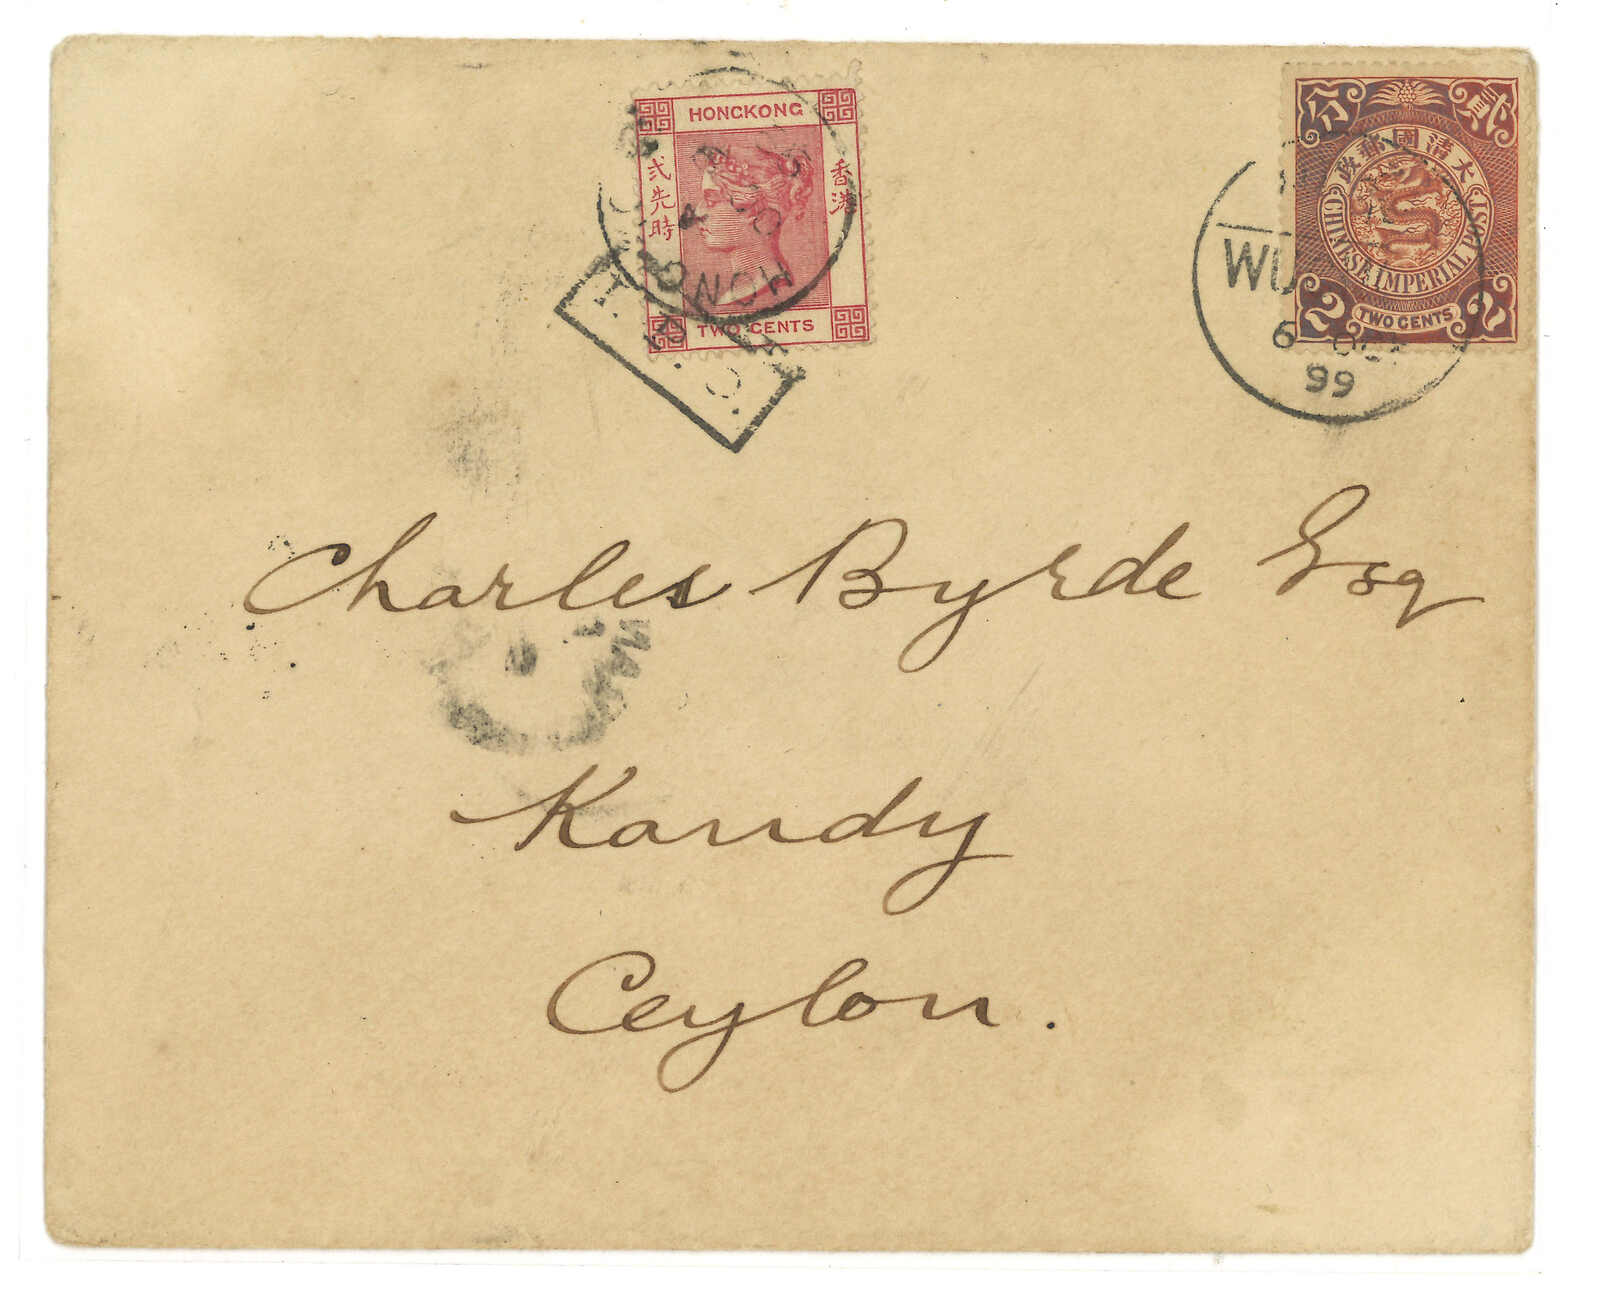 HONGKONG
香港
弍先時
TWO CENTS
HONG
I.P.O.
貳分
大清國郵政
CHINESE IMPERIAL POST
2 TWO CENTS 2
WU
6 OCT
99
Charles Byrde Esq
Kandy
Ceylon.